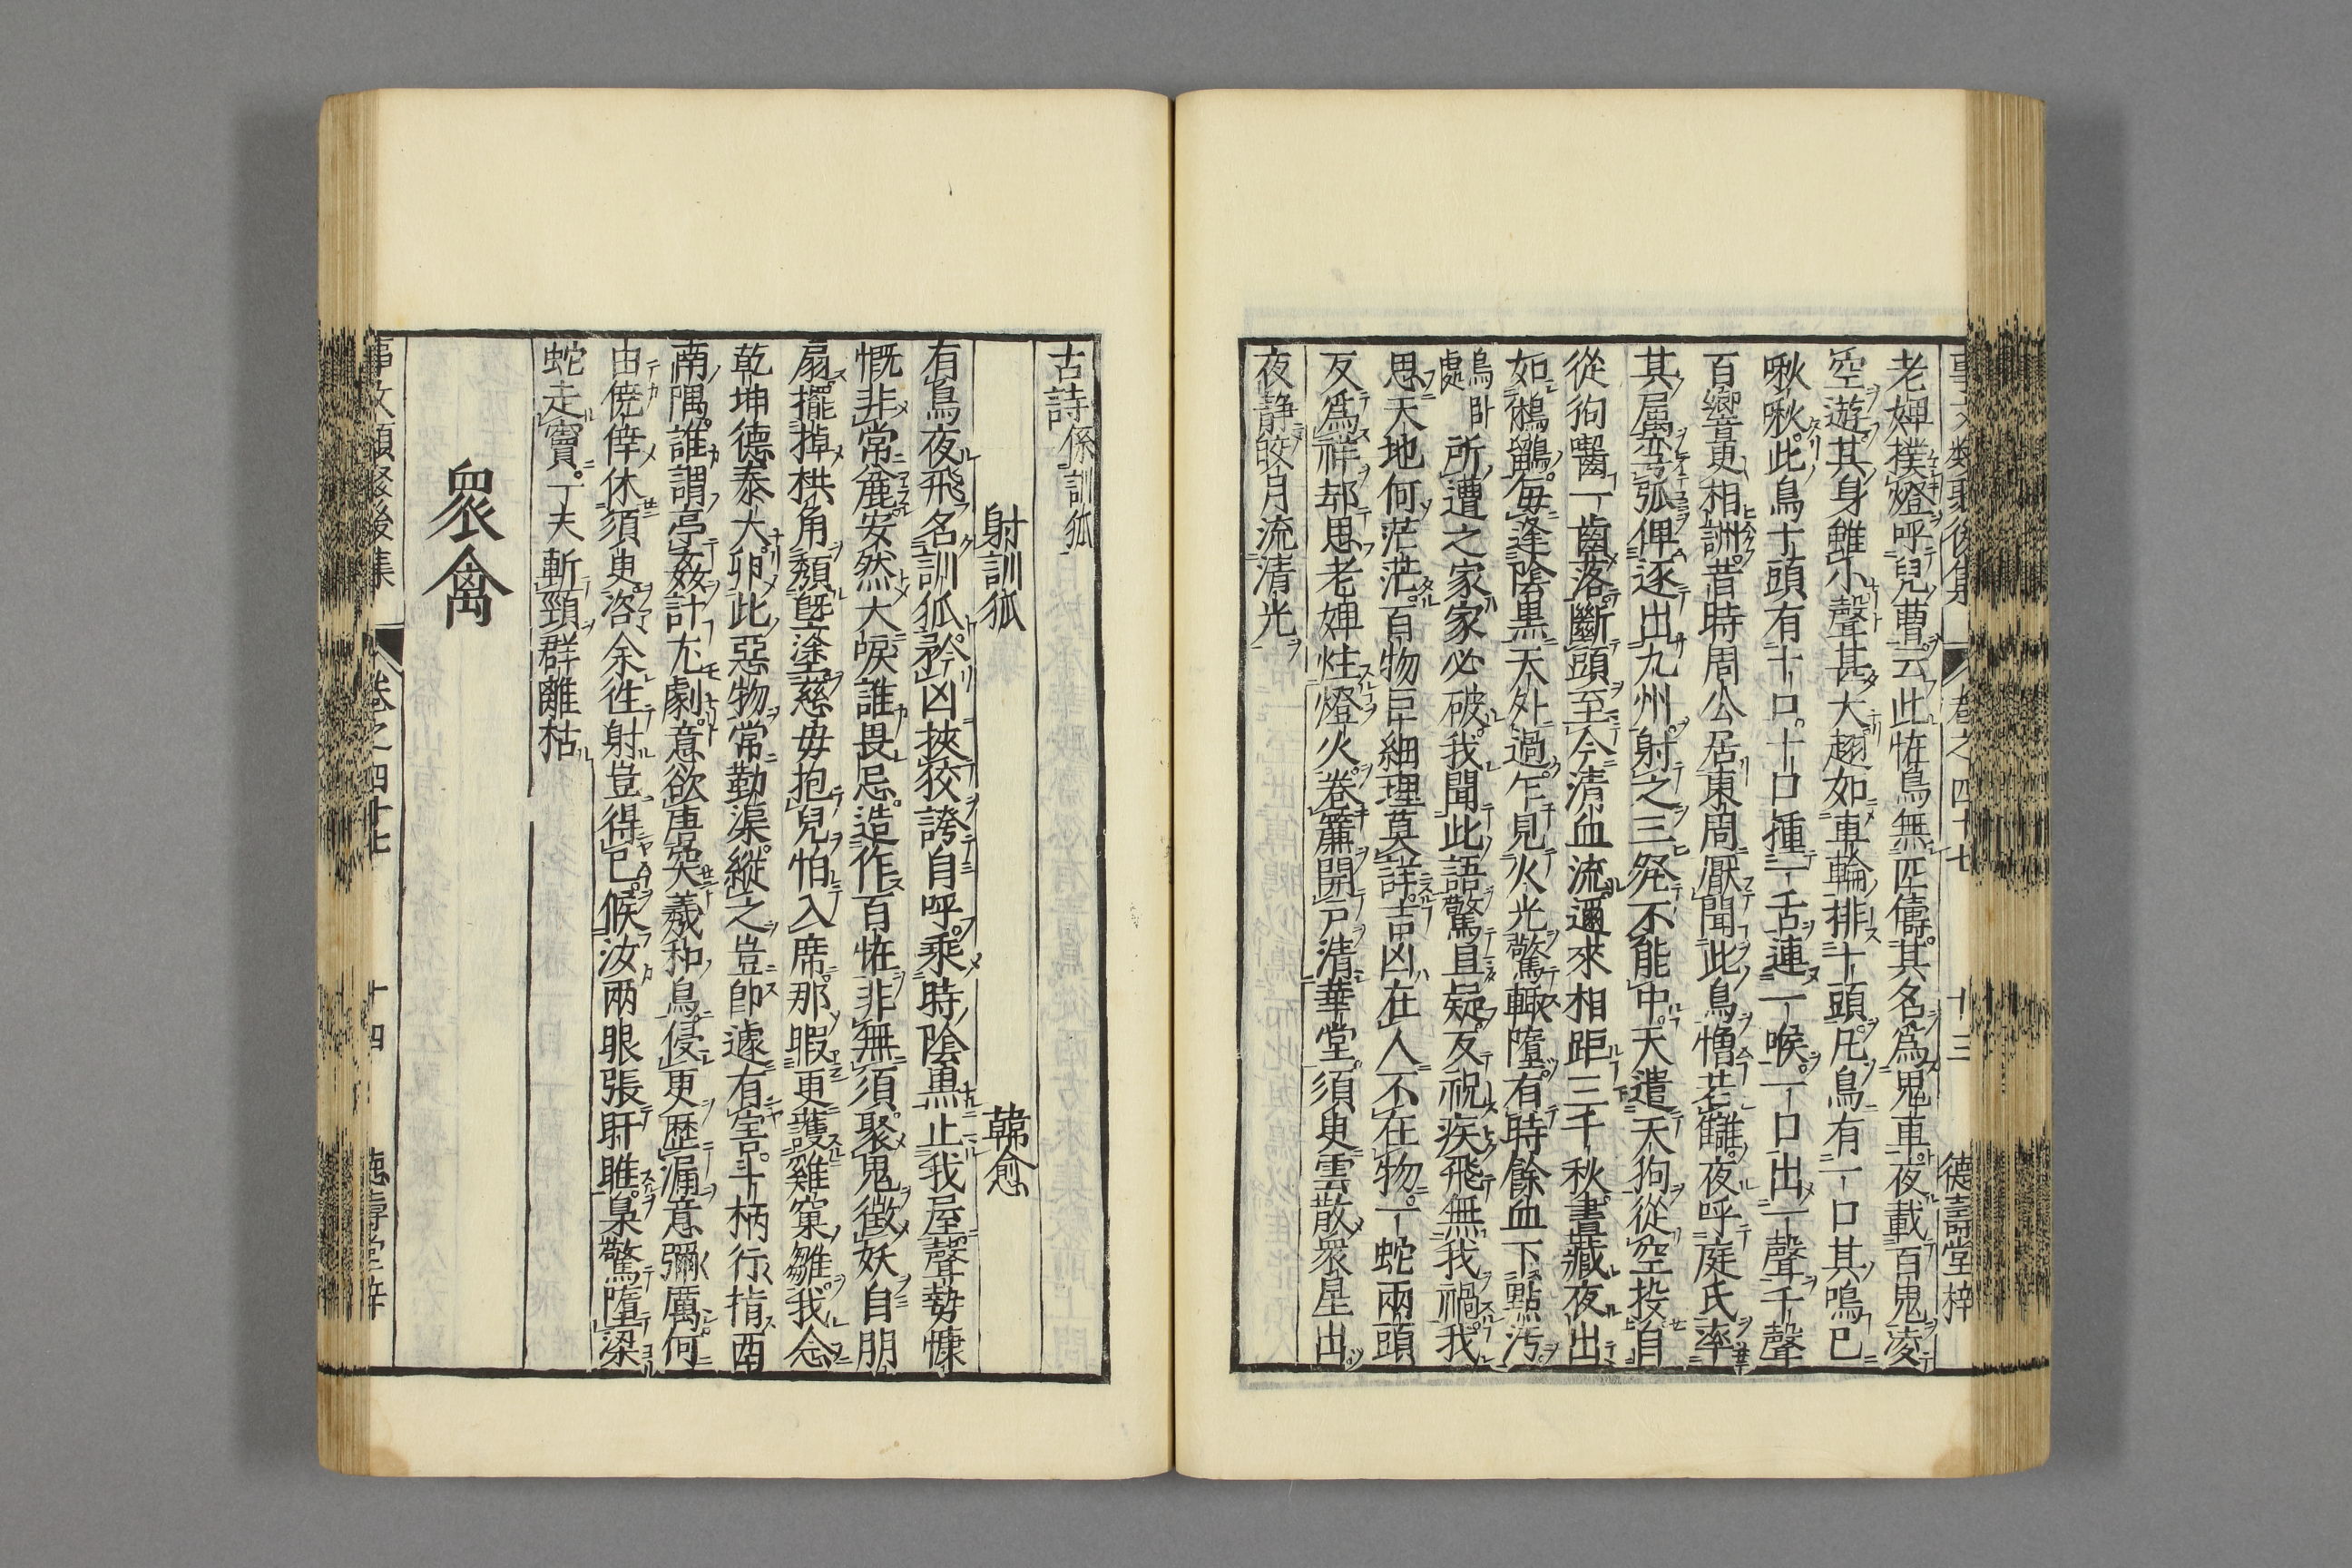 老婢撲燈呼兒曹云此恠鳥無匹儔其名爲鬼車夜載百鬼凌
空遊其身雖小聲甚大翅如車輪排十頭凡鳥有一口其鳴已
啾啾此鳥十頭有十口十口揷一舌連一喉一口出一聲千聲
百響更相訓昔時周公居東周厭聞此鳥憎若讎夜呼庭氏率
其屬弯弧俾逐出九州射之三發不能中天遣天狗從空投自
從狗嚙一齒落斷頭至今清血流邇來相距三千秋晝藏夜出
如鵂鶹每逢陰黑天外過乍見火光驚輒墮有時餘血下點汚
所遭之家家必破我聞此語驚且疑反祝疾飛無我禍我
思天地何茫茫百物巨細理莫詳吉凶在人不在物一蛇兩頭
反爲祥却思老婢炷燈火卷簾開戶清華堂須臾雲散衆星出
夜靜皎月流清光
卷之四十七 十三 德壽堂梓
古詩係訓狐
射訓狐 韓愈
有鳥夜飛名訓狐矜凶挾狡誇自呼乘時陰黒止我屋聲勢慷
慨非常麁安然大唳誰畏忌造作百恠非無須聚鬼徵妖自朋
扇擺掉栱角頽墍塗慈毋抱兒怕入席那暇更護雞窠雛我念
乾坤德泰大卵此惡物常勤渠縱之豈卽遽有害斗柄行揹酉
南隅誰謂亭姦計尤劇意欲唐突羲和烏侵更歷漏意彌厲何
由僥倖休須臾咨余徃射豈得已候汝兩眼張盱睢梟驚墮梁
蛇走竇一夫斬頸群雛枯
衆禽
事文類聚後集 卷之四十七 十四 德壽堂梓